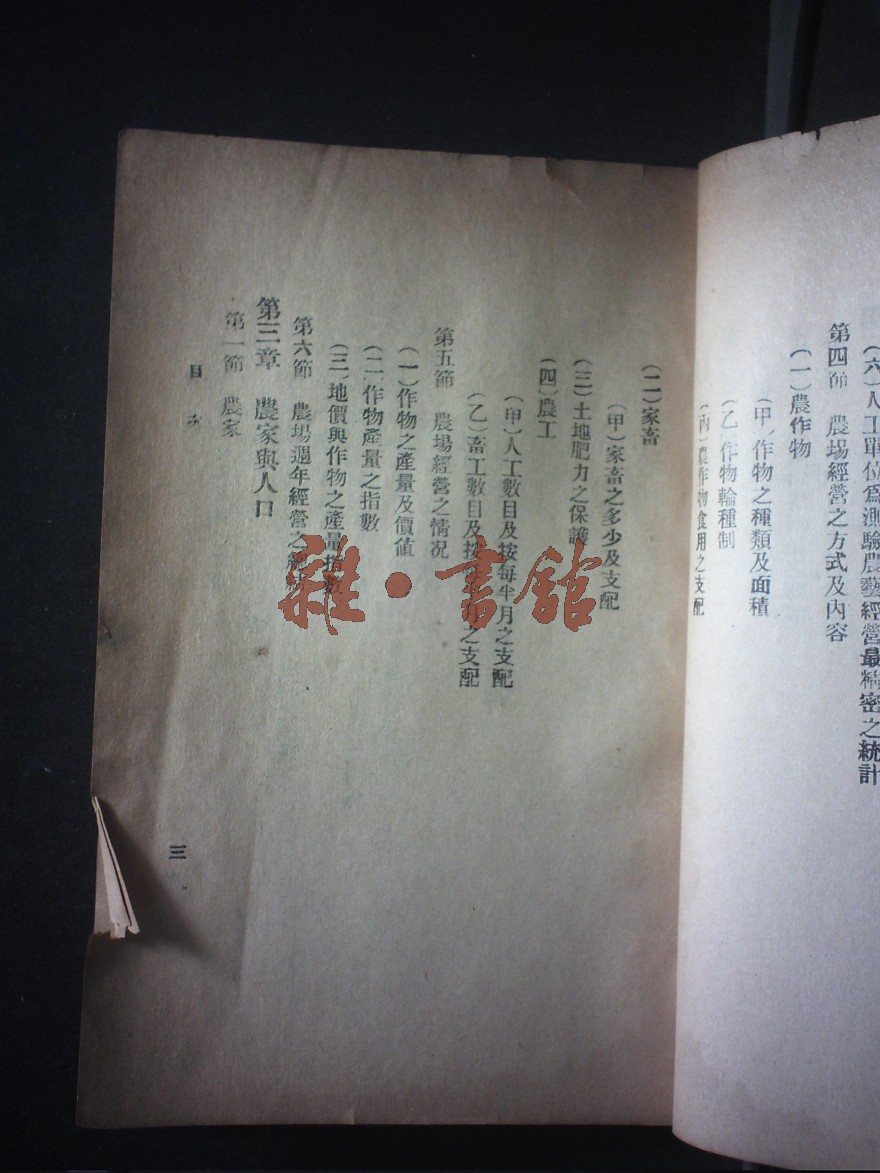 (六)人工單位爲測驗農藝經營最精密之統計
第四節 農場經營之方式及內容
(一)農作物
(甲)作物之種類及面積
(乙)作物輪種制
(丙)農作物食用之支配
(二)家畜
(甲)家畜之多少及支配
(三)土地肥力之保護
(四)農工
(甲)人工數目及按每半月之支配
(乙)畜工數目及按 月之支配
第五節 農場經營之情况
(一)作物之產量及價值
(二)作物產量之指數
(三)地價與作物之產量指數
第六節 農場週年經營之總
第三章 農家與人口
第一節 農家
目次
三
雜·書館